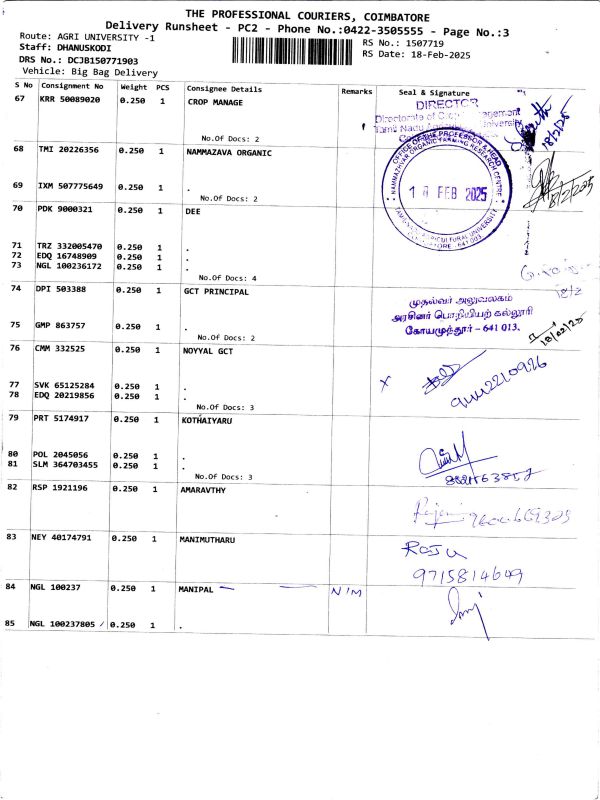 THE PROFESSIONAL COURIERS, COIMBATORE
Delivery Runsheet - PC2 - Phone No.:0422-3505555 - Page No.:3
Route: AGRI UNIVERSITY -1
Staff: DHANUSKODI
DRS No.: DCJB150771903
Vehicle: Big Bag Delivery
RS No.: 1507719
RS Date: 18-Feb-2025
S No Consignment No Weight PCS Consignee Details Remarks Seal & Signature
67 KRR 50089020 0.250 1 CROP MANAGE
DIRECTOR
Directorate of Crop Management
Tamil Nadu University
No.Of Docs: 2
18/2/25
68 TMI 20226356 0.250 1 NAMMAZAVA ORGANIC
OFFICE OF THE PROFESSOR & HEAD
NAMMAZHVAR ORGANIC FARMING RESEARCH CENTRE
18 FEB 2025
TAMIL NADU AGRICULTURAL UNIVERSITY
COIMBATORE - 641 003.
18/2/2025
69 IXM 507775649 0.250 1 .
No.Of Docs: 2
70 PDK 9000321 0.250 1 DEE
71 TRZ 332005470 0.250 1 .
72 EDQ 16748909 0.250 1 .
73 NGL 100236172 0.250 1 .
No.Of Docs: 4
18/2
74 DPI 503388 0.250 1 GCT PRINCIPAL
முதல்வர் அலுவலகம்
அரசினர் பொறியியற் கல்லூரி
கோயமுத்தூர் - 641 013.
18/02/25
75 GMP 863757 0.250 1 .
No.Of Docs: 2
76 CMM 332525 0.250 1 NOYYAL GCT
77 SVK 65125284 0.250 1 .
78 EDQ 20219856 0.250 1 .
No.Of Docs: 3
79 PRT 5174917 0.250 1 KOTHAIYARU
80 POL 2045056 0.250 1 .
81 SLM 364703455 0.250 1 .
No.Of Docs: 3
82 RSP 1921196 0.250 1 AMARAVTHY
83 NEY 40174791 0.250 1 MANIMUTHARU
Raju
9715814649
84 NGL 100237 0.250 1 MANIPAL N/M
85 NGL 100237805 / 0.250 1 .